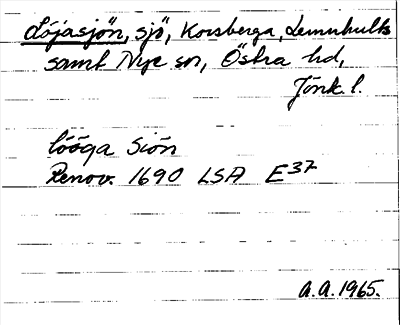 Löjasjön, sjö, Korsberga, Lemnhults
samt Nye sn, Östra hd,
Jönk. l.
lööga Siön
Renov. 1690 LSA E37
A.A. 1965.